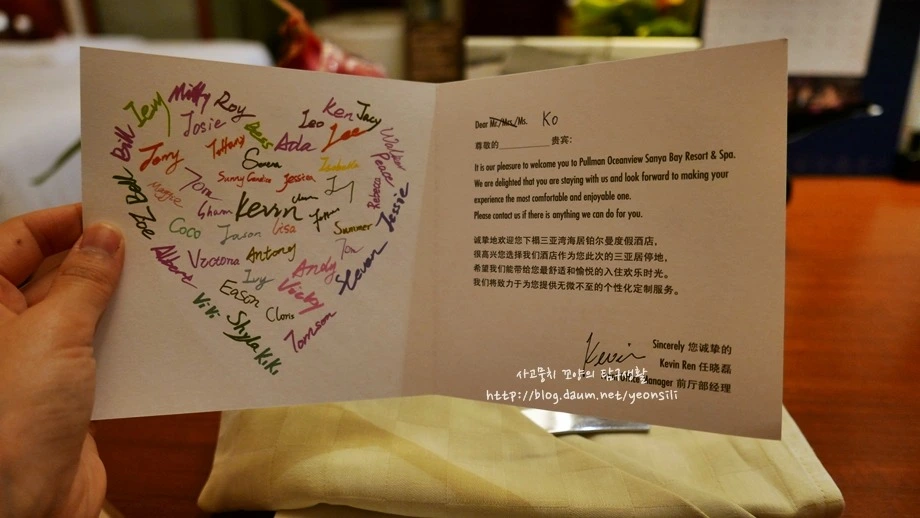 Milly
Roy
Jevy
Josie
Bill
Ken
Jacy
Leo
Lee
Ada
Tiffany
Tony
Serena
Sunny
Candice
Jessica
Isabella
Walker
Peace
Rebecca
Jessie
Maggie
Tom
Shawn
Kevin
Zoe
Coco
Jason
Lisa
Summer
Victoria
Antony
Albert
Ivy
Andy
Vicky
Eason
Cloris
ViVi
Shyla
KiKi
Tomson
Dear Mr./Mrs./Ms. Ko
尊敬的________贵宾：
It is our pleasure to welcome you to Pullman Oceanview Sanya Bay Resort & Spa.
We are delighted that you are staying with us and look forward to making your
experience the most comfortable and enjoyable one.
Please contact us if there is anything we can do for you.
诚挚地欢迎您下榻三亚湾海居铂尔曼度假酒店，
很高兴您选择我们酒店作为您此次的三亚居停地，
希望我们能带给您最舒适和愉悦的入住欢乐时光。
我们将致力于为您提供无微不至的个性化定制服务。
Kevin
Sincerely 您诚挚的
Kevin Ren 任晓磊
Manager 前厅部经理
사고뭉치 꼬양의 탐구생활
http://blog.daum.net/yeonsili